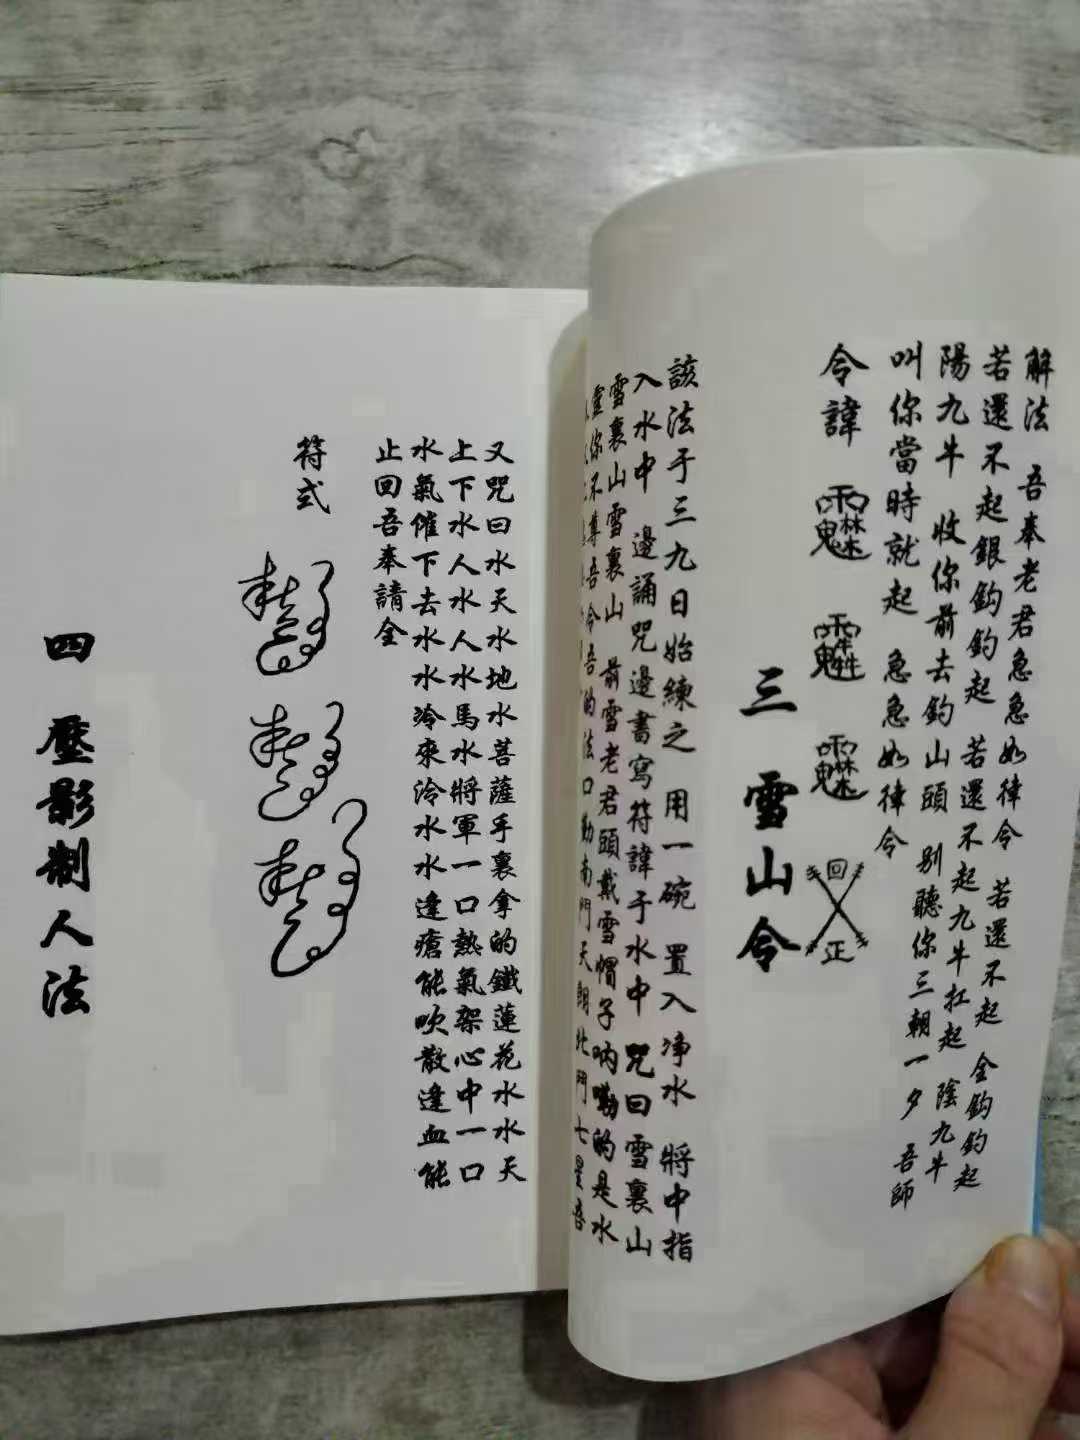 解法 吾奉老君急急如律令 若還不起 金鈎鈎起
若還不起銀鈎鈎起 若還不起九牛扛起 陰九牛
陽九牛 收你前去鈎山頭 别聽你三朝一夕 吾師
叫你當時就起 急急如律令
令諱
回
正
三 雪山令
該法于三九日始練之 用一碗 置入净水 將中指
入水中 邊誦咒邊書寫符諱于水中 咒曰雪裏山
雪裏山雪裏山 前雪老君頭戴雪帽子呐嘞的是水
靈你不尊吾令吾的法口勅南門天朗北門七星吾
又咒曰水天水地水菩薩手裏拿的鐵蓮花水水天
上下水人水人水馬水將軍一口熱氣架心中一口
水氣催下去水水冷來冷水水逢瘡能吹散逢血能
止回吾奉請全
符式
四 壓影制人法